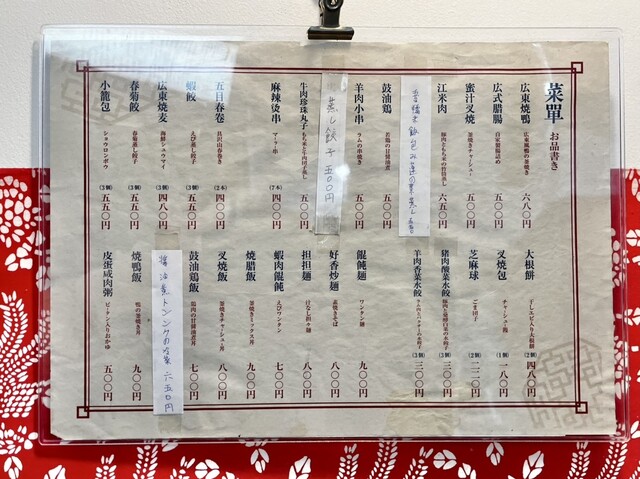 菜單 お品書き
広東焼鴨 広東風鴨の釜焼き 六八〇円
広式腊腸 自家製腸詰め 五〇〇円
蜜汁叉焼 釜焼きチャーシュー 五〇〇円
江米肉 豚肉ともち米の甘醤蒸し 六五〇円
羊肉小串 ラムの串焼き 五〇〇円
鼓油鶏 若鶏の甘醤油煮 五五〇円
蒸し餃子 五〇〇円
牛肉珍珠丸子 もち米と牛肉団子蒸し 五〇〇円
麻辣烫串 マーラー串 (7本) 四〇〇円
五目春卷 具沢山春巻き (2本) 四〇〇円
蝦餃 えび蒸し餃子 (3個) 五五〇円
広東焼麦 海鮮シュウマイ (3個) 四八〇円
春菊餃 春菊蒸し餃子 (3個) 五五〇円
小籠包 ショウロンポウ (3個) 五五〇円
大根餅 干しエビ入り大根餅 (2個) 四八〇円
叉焼包 チャーシュー饅 (1個) 一八〇円
芝麻球 ごま団子 (2個) 二二〇円
猪肉酸菜水餃 豚肉と発酵白菜の水餃子 (3個) 三〇〇円
羊肉香菜水餃 ラム肉とパクチーの水餃子 (3個) 三〇〇円
餛飩麺 ワンタン麺 九〇〇円
好香炒麺 五目焼きそば 八〇〇円
担担麺 汁なし担々麺 八〇〇円
蝦肉餛飩 えびワンタン 七〇〇円
焼腊飯 釜焼きミックス丼 九〇〇円
叉焼飯 釜焼きチャーシュー丼 八〇〇円
鼓油鶏飯 鶏肉の甘醤油煮丼 七〇〇円
醤油煮トンソクの冷菜 六五〇円
焼鴨飯 鴨の釜焼き丼 九〇〇円
皮蛋咸肉粥 ピータン入りおかゆ 五〇〇円